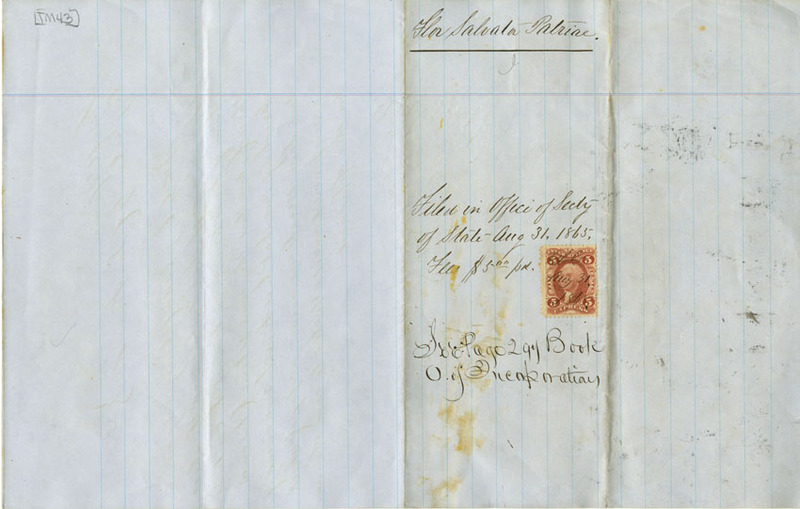 [TM43]
Flor Salvator Patriae.
Filed in Office of Secty
of State Aug 31. 1865.
Fee $5.00 pd.
5 5
Aug 31
5 5
EXPRESS
See Page 294 Book
O. of Incorporations